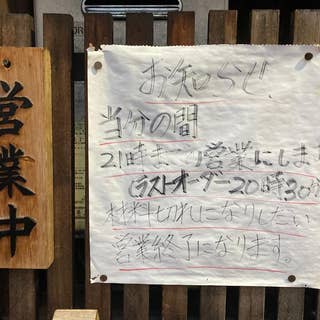 営業中
お知らせ
当分の間
21時までの営業にします
(ラストオーダー20時30分
材料切れになりしだい
営業終了になります。